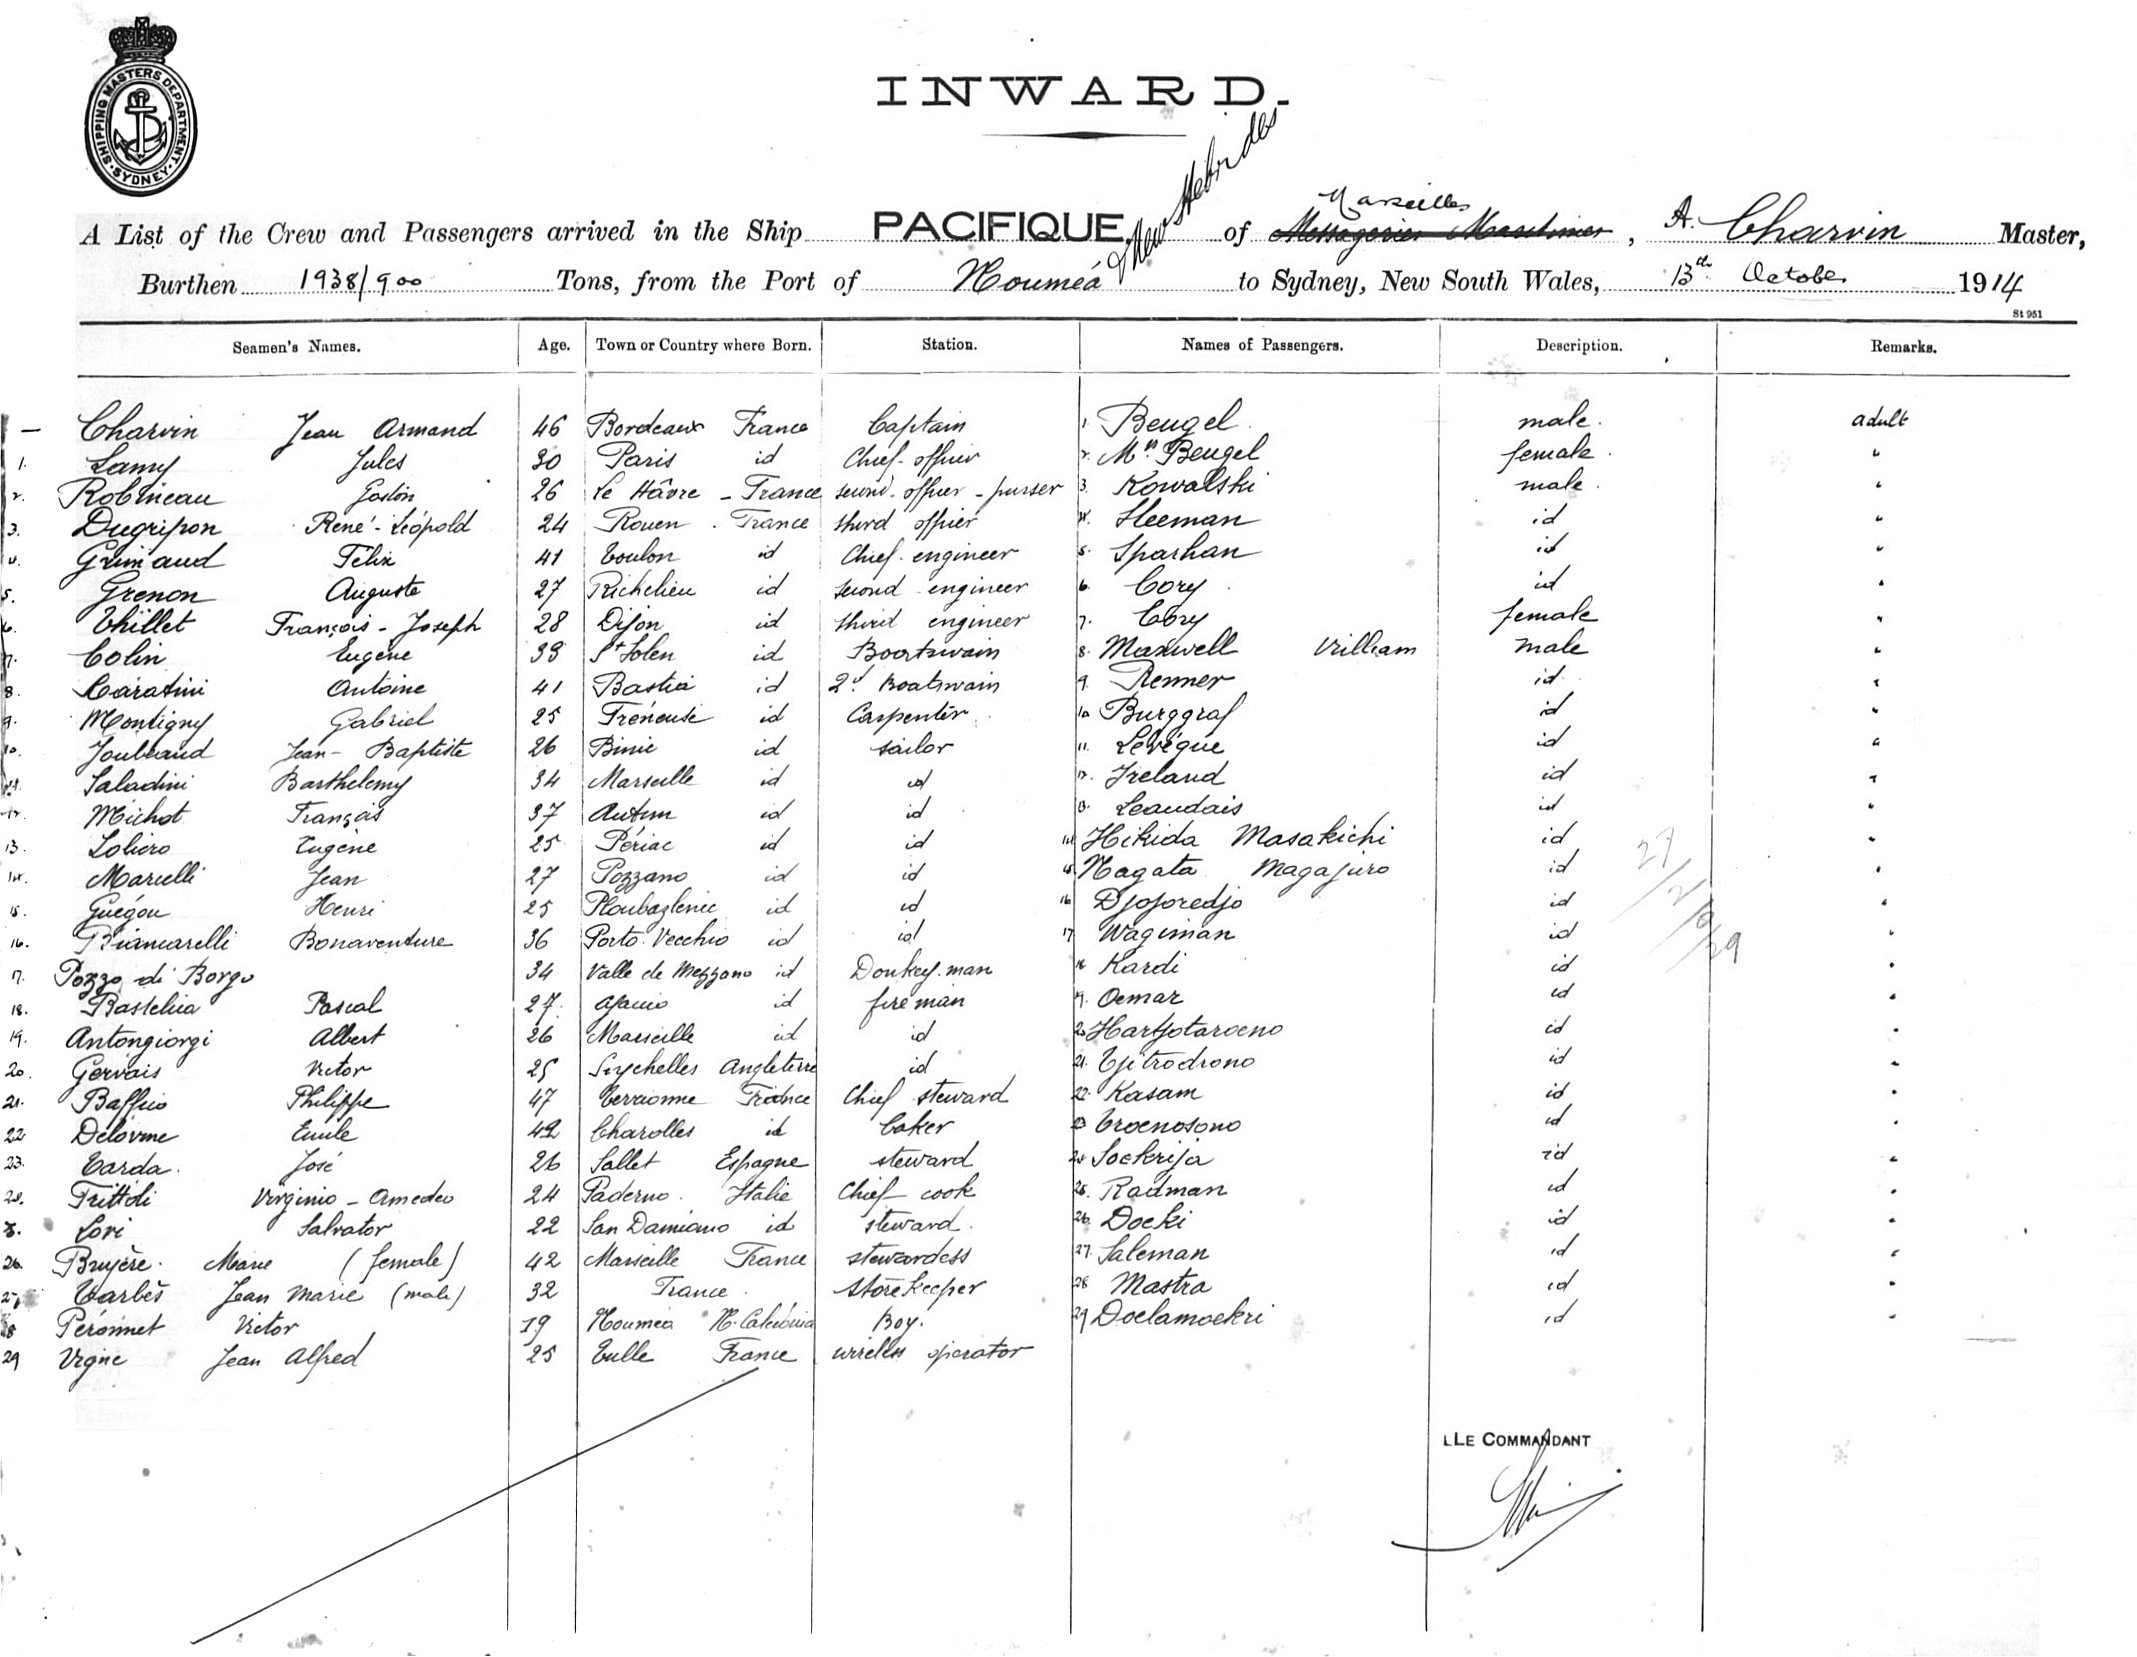 SHIPPING MASTERS DEPARTMENT. SYDNEY.
INWARD.
& New Hebrides
Marseilles
A List of the Crew and Passengers arrived in the Ship PACIFIQUE of Messageries Maritimes, A. Charvin Master,
Burthen 1938/900 Tons, from the Port of Nouméa to Sydney, New South Wales, 13th October 1914
St 951
Seamen's Names. Age. Town or Country where Born. Station. Names of Passengers. Description. Remarks.
— Charvin Jean Armand 46 Bordeaux France Captain 1. Beugel male. adult
1. Lamy Jules 30 Paris id Chief officer 2. Mrs Beugel female. "
2. Robineau Gaston 26 Le Hâvre - France second officer - purser 3. Kowalski male. "
3. Dugripon René-Léopold 24 Rouen. France third officer 4. Sleeman id "
4. Grimaud Félix 41 Toulon id Chief engineer 5. Sparhan id "
5. Grenon Auguste 27 Richelieu id second engineer 6. Cory id "
6. Thillet François-Joseph 28 Dijon id third engineer 7. Cory female "
7. Colin Eugène 33 St Solen id Boatswain 8. Maxwell William male "
8. Caratini Antoine 41 Bastia id 2d Boatswain 9. Renner id "
9. Montigny Gabriel 25 Fréneuse id Carpenter 10 Burggraf id "
10. Joubeaud Jean-Baptiste 26 Binic id sailor 11. Levêque id "
11. Saladini Barthelemy 34 Marseille id id 12. Ireland id "
12. Michot François 37 Autun id id 13. Leaudais id "
13. Eugène 25 Périac id id 14 Hikida Masakichi id "
14. Marielli Jean 27 Pozzano id id 15 Nagata Magajiro id "
15. Guégou Henri 25 Ploubazlenec id id 16 Djojoredjo id "
16. Biancarelli Bonaventure 36 Porto-Vecchio id id 17 Wagiman id "
17. Pozzo di Borgo 34 Valle de Mezzano id Donkey-man 18 Kardi id "
18. Bastelica Pascal 27. Ajaccio id fireman 19. Oemar id "
19. Antongiorgi Albert 26 Marseille id id 20 Hartjotaroeno id "
20. Gervais Victor 25 Seychelles Angleterre id 21. Tjitrodrono id "
21. Baffico Philippe 47 France Chief steward 22. Kasam id "
22 Delorme Emile 42 Charolles id baker 23 Troenosono id "
23. Tarda. José 26 Sallet Espagne steward 24 Soekrija id "
24. Frittoli Virginio-Amedeo 24 Paderno. Italie Chief cook 25. Radman id "
Lovi Salvator 22 San Damiano id steward. 26. Doeki id "
26. Bruyère. Marie (female) 42 Marseille France stewardess 27. Saleman id "
27. Tarbès Jean Marie (male) 32 France storekeeper 28 Mastra id "
28 Péronnet Victor 19 Nouméa N. Calédonia Boy. 29 Doelamoekri id "
29 Vigne Jean Alfred 25 Tulle France wireless operator
27/2/10/29
LLE COMMANDANT